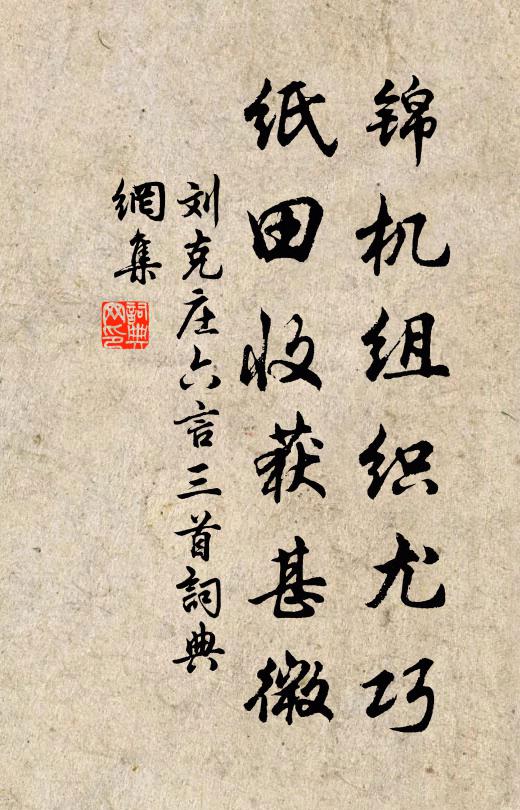 锦机组织尤巧
纸田收获甚微
刘克庄六言三首詞典
網集
詞典
网印